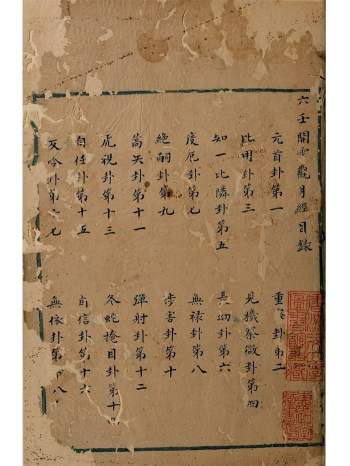 六壬開雲觀月經目錄
元首卦第一
重 卦第二
比用卦第三
見機察微卦第四
知一比隣卦第五
長幼卦第六
度厄卦第七
無祿卦第八
絕嗣卦第九
涉害卦第十
蒿矢卦第十一
彈射卦第十二
虎視卦第十三
冬蛇掩目卦第十
自任卦第十五
自信卦第十六
反吟卦第十七
無依卦第十八